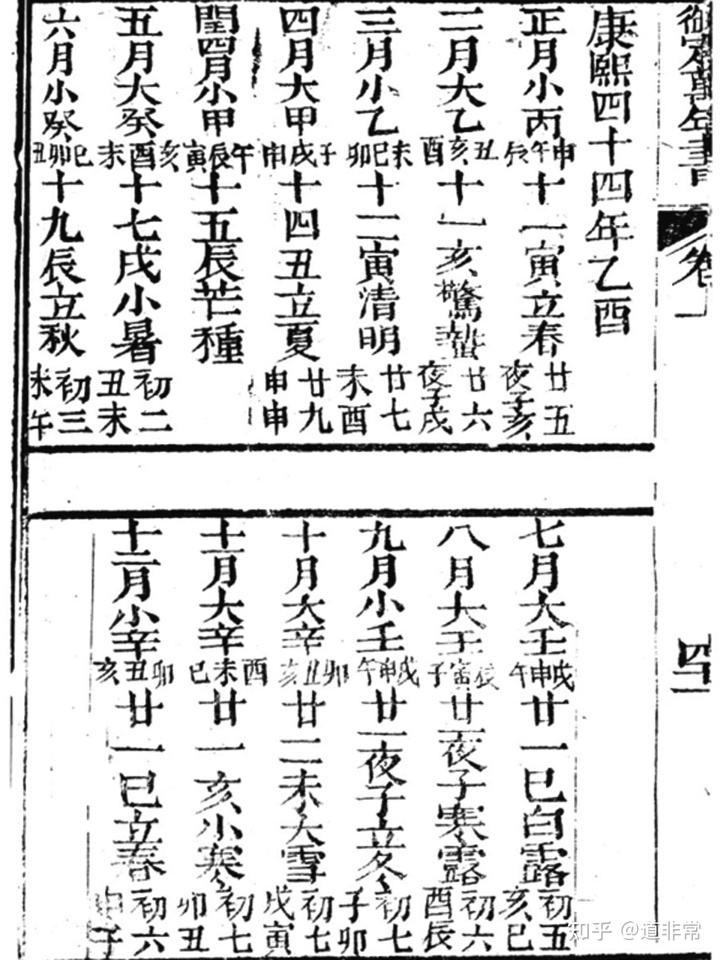 御定萬年書 卷一
康熙四十四年乙酉
正月小丙申午辰十一寅立春廿五夜子亥
二月大乙丑亥酉十一亥驚蟄廿六夜子戌
三月小乙未巳卯十二寅清明廿七未酉
四月大甲子戌申十四丑立夏廿九申申
閏四月小甲午辰寅十五辰芒種
五月大癸亥酉未十七戌小暑初二丑未
六月小癸巳卯丑十九辰立秋初三未午
七月大壬戌申午廿一巳白露初五亥巳
八月大壬辰寅子廿一夜子寒露初六酉辰
九月小壬戌申午廿一夜子立冬初七子卯
十月大辛卯丑亥廿二未大雪初七戌寅
十一月大辛酉未巳廿一亥小寒初七卯丑
十二月小辛卯丑亥廿一巳立春初六申子
知乎 @道非常